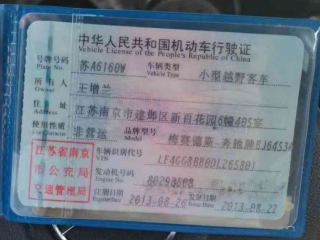 中华人民共和国机动车行驶证
Vehicle License of the People's Republic of China
号牌号码 苏A6160W 车辆类型 小型越野客车
Plate No. Vehicle Type
所有人 王增兰
Owner
住址 江苏南京市建邺区新百花园6幢405室
使用性质 非营运 品牌型号 梅赛德斯-奔驰牌BJ6453
江苏省南京
市公安局
交通管理局
车辆识别代号
VIN
发动机号码
Engine No.
注册日期 2013-08-26 发证日期 2013-08-27